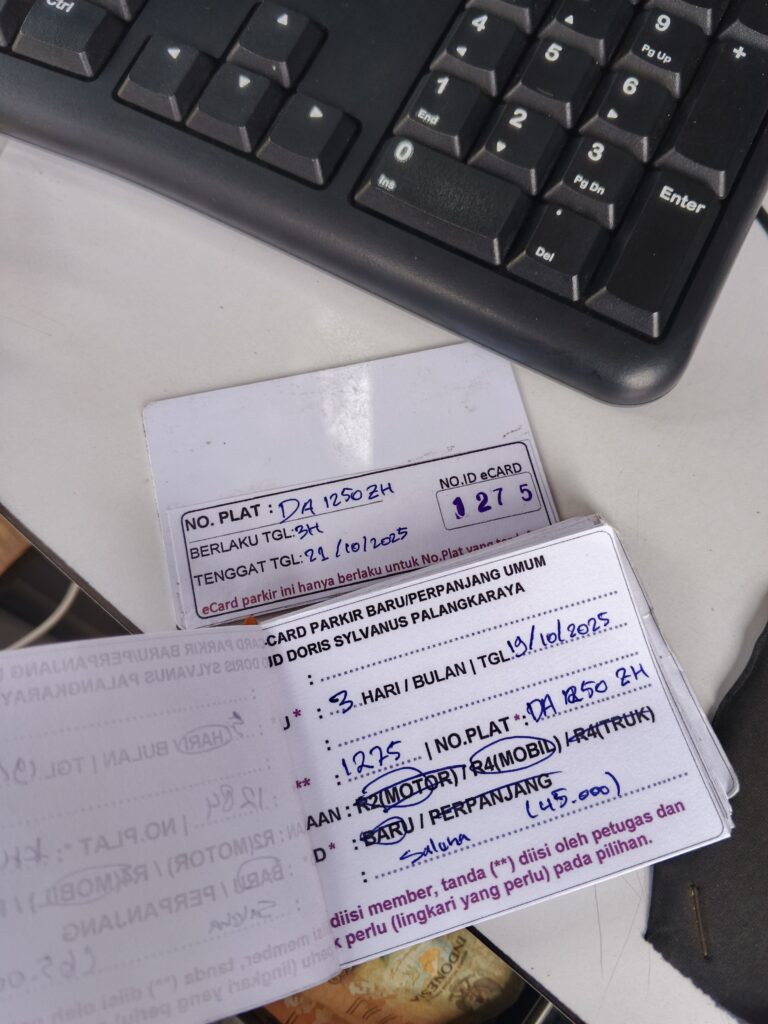 Ctrl
4
5
9
Pg Up
+
1
End
2
6
0
Ins
3
Pg Dn
Enter
.
Del
NO. PLAT : DA 1250 ZH
NO.ID eCARD
1275
BERLAKU TGL: 3H
TENGGAT TGL: 21/10/2025
eCard parkir ini hanya berlaku untuk No.Plat yang
CARD PARKIR BARU/PERPANJANG UMUM
D DORIS SYLVANUS PALANGKARAYA
:
U * : 3 HARI / BULAN | TGL 19/10/2025
:
** : 1275 | NO.PLAT *: DA 1250 ZH
AAN : R2(MOTOR) / R4(MOBIL) / R4(TRUK)
D * : BARU / PERPANJANG
: Saluna (45.000)
diisi member, tanda (**) diisi oleh petugas dan
k perlu (lingkari yang perlu) pada pilihan.
INDONESIA